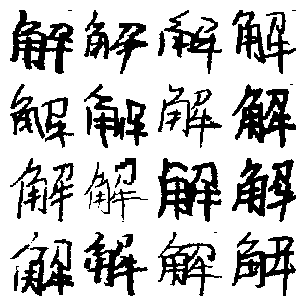 解解解解
解解解解
解解解解
解解解解